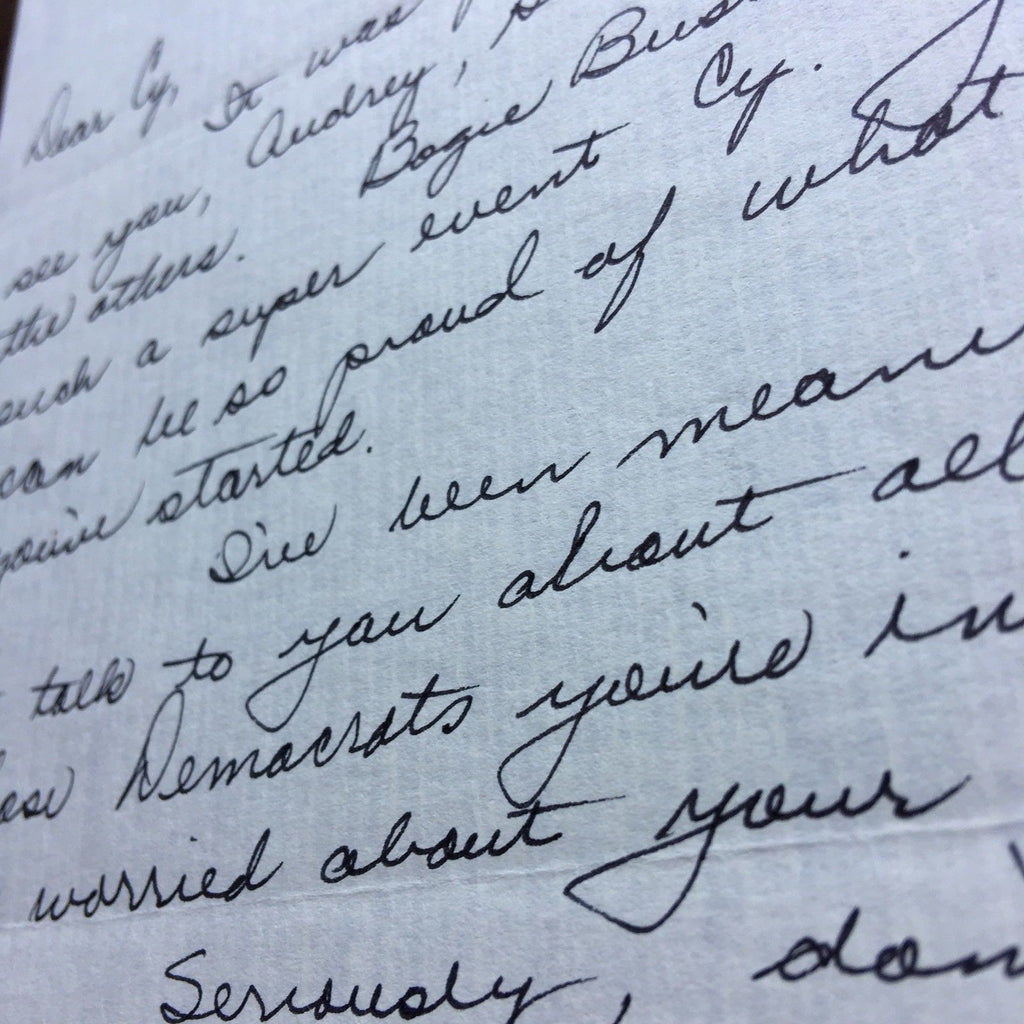 Dear Cy,
It was
see you, Audrey,
the others. Bogie
such a super event Cy.
can be so proud of what
you've started.
I've been
talk to you about all
Democrats you're
worried about your
Seriously,